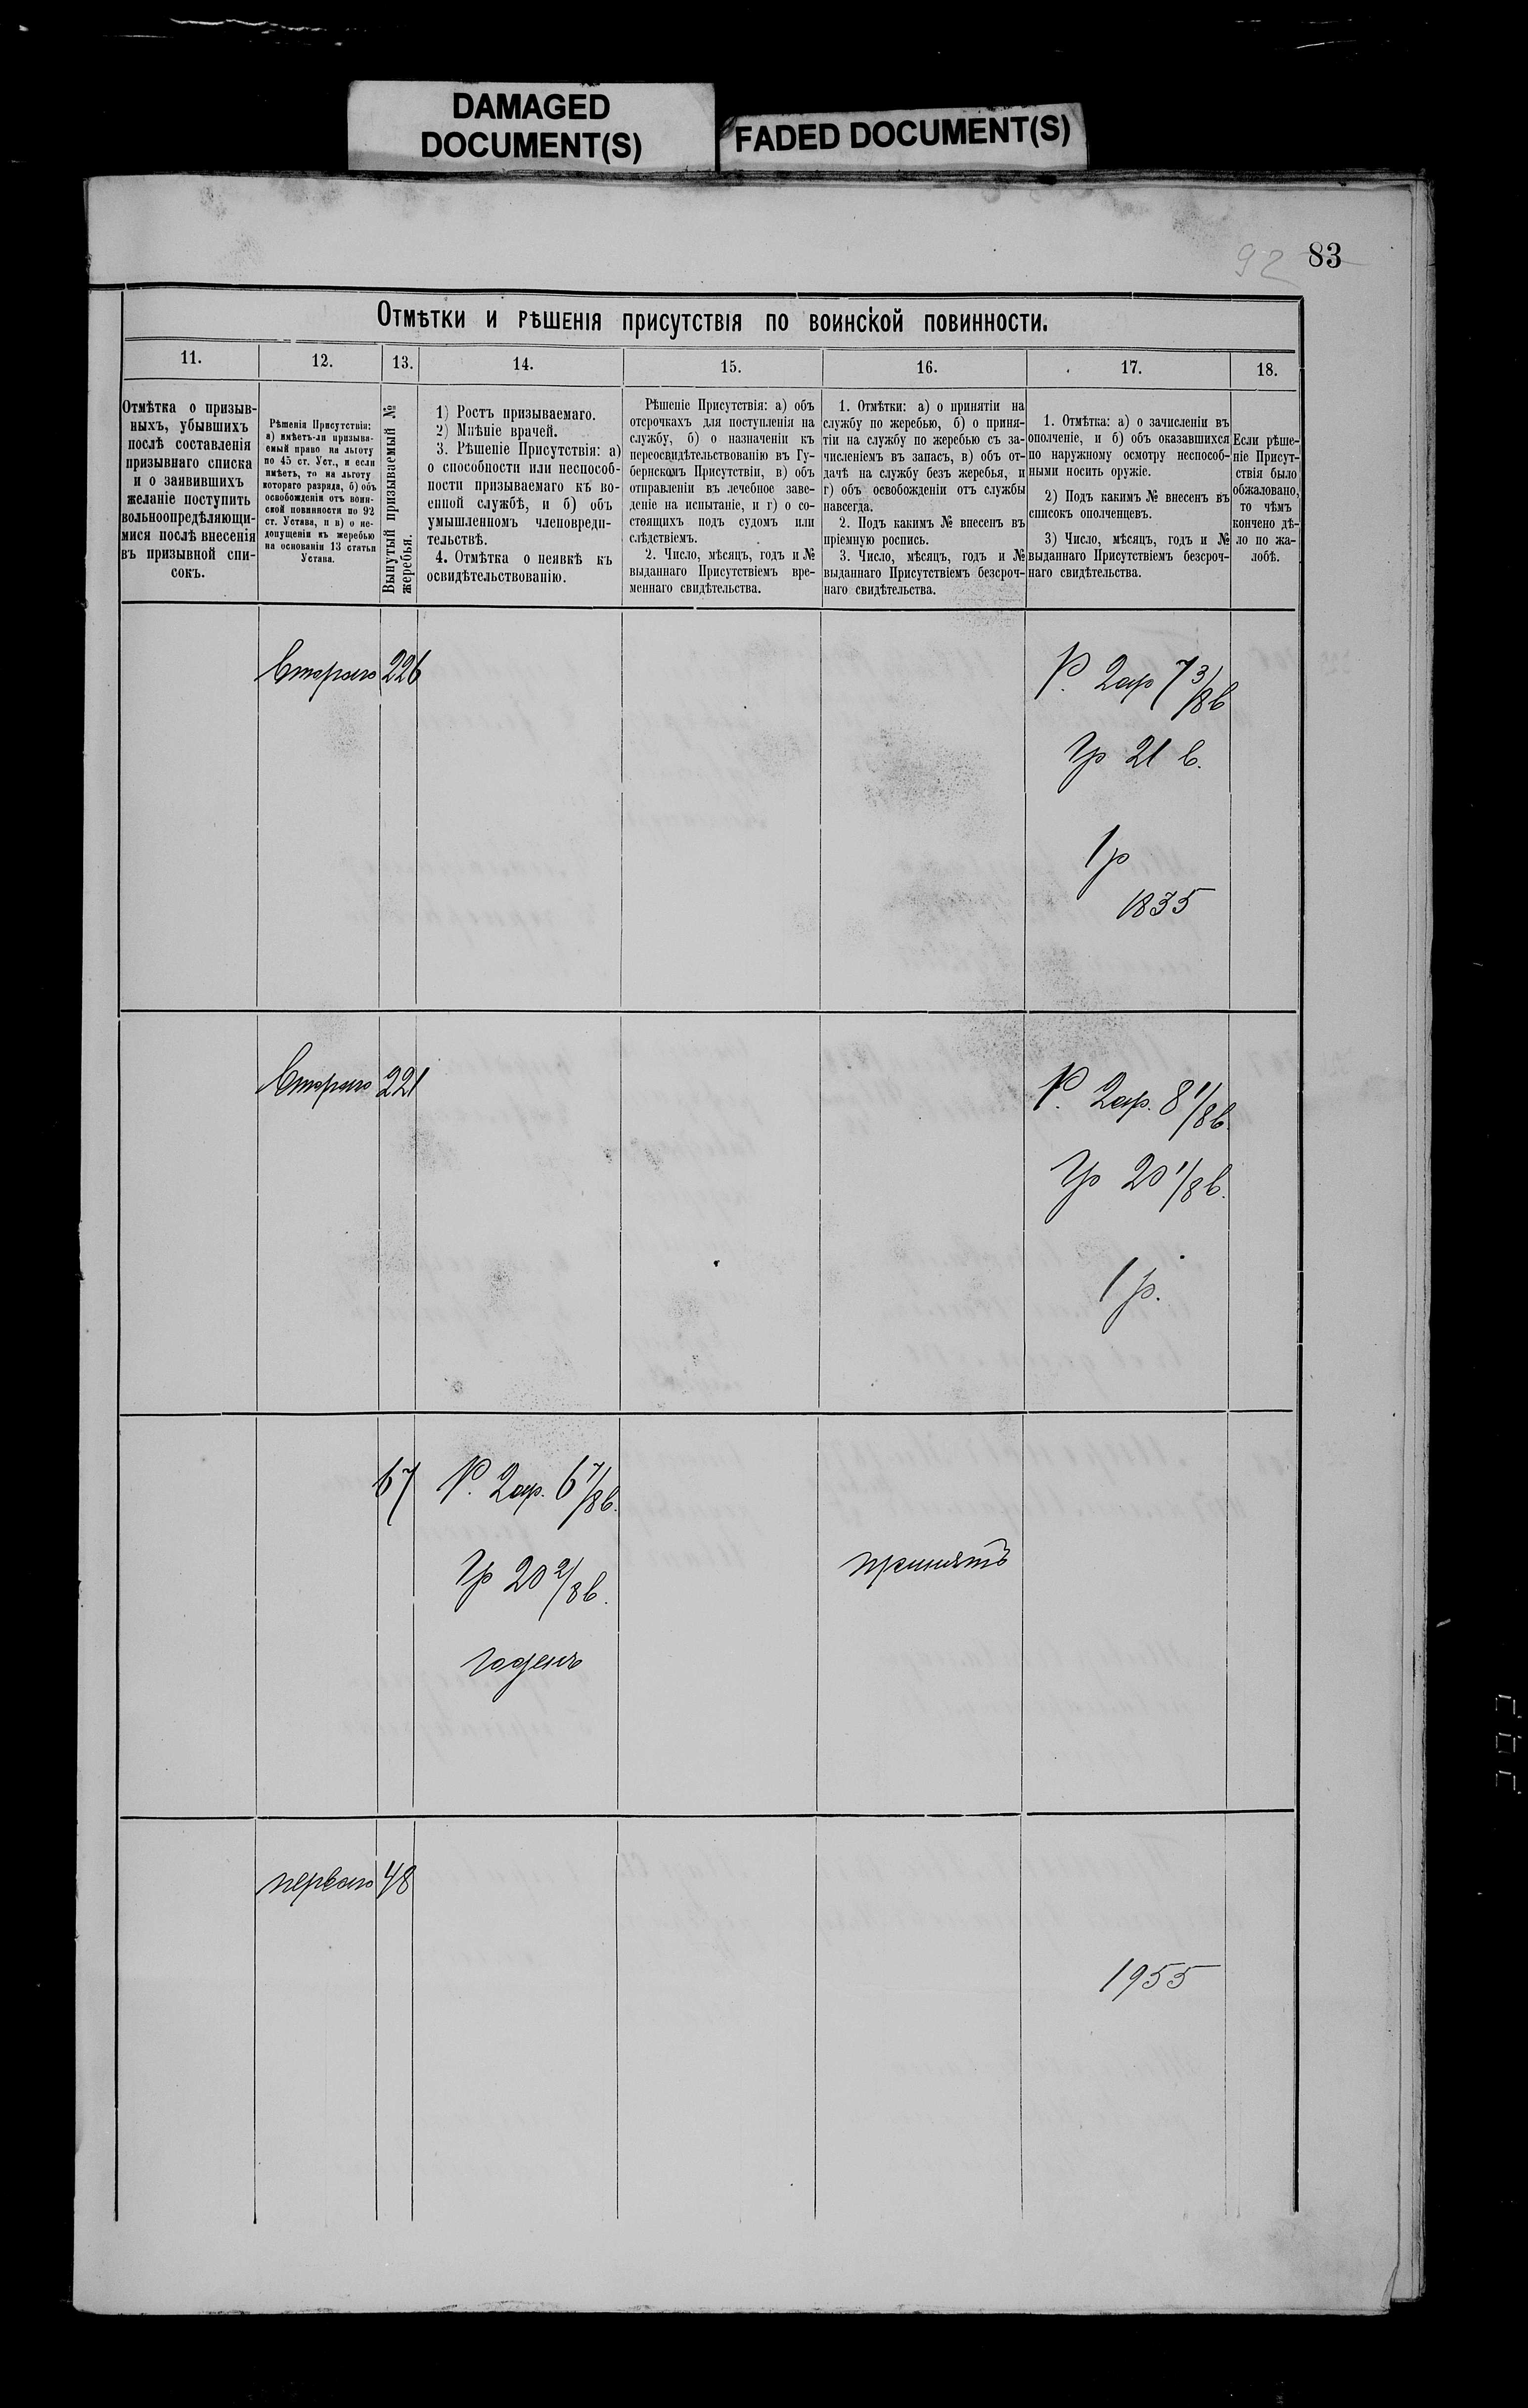 DAMAGED
DOCUMENT(S)
FADED DOCUMENT(S)
92 83
Отмѣтки и рѣшенія присутствія по воинской повинности.
11.
12.
13.
14.
15.
16.
17.
18.
Отмѣтка о призыв-
ныхъ, убывшихъ
послѣ составленія
призывнаго списка
и о заявившихъ
желаніе поступить
вольноопредѣляющи-
мися послѣ внесенія
въ призывной спи-
сокъ.
Рѣшенія Присутствія:
а) имѣетъ-ли призыва-
емый право на льготу
по 45 ст. Уст., и если
имѣетъ, то на льготу
котораго разряда, б) объ
освобожденіи отъ воин-
ской повинности по 92
ст. Устава, и в) о не-
допущеніи къ жеребью
на основаніи 13 статьи
Устава.
Вынутый призываемый №
жеребья.
1) Ростъ призываемаго.
2) Мнѣніе врачей.
3. Рѣшеніе Присутствія: а)
о способности или неспособ-
ности призываемаго къ во-
енной службѣ, и б) объ
умышленномъ членовреди-
тельствѣ.
4. Отмѣтка о неявкѣ къ
освидѣтельствованію.
Рѣшеніе Присутствія: а) объ
отсрочкахъ для поступленія на
службу, б) о назначеніи къ
переосвидѣтельствованію въ Гу-
бернскомъ Присутствіи, в) объ
отправленіи въ лечебное заве-
деніе на испытаніе, и г) о со-
стоящихъ подъ судомъ или
слѣдствіемъ.
2. Число, мѣсяцъ, годъ и №
выданнаго Присутствіемъ вре-
меннаго свидѣтельства.
1. Отмѣтки: а) о принятіи на
службу по жеребью, б) о приня-
тіи на службу по жеребью съ за-
численіемъ въ запасъ, в) объ от-
дачѣ на службу безъ жеребья, и
г) объ освобожденіи отъ службы
навсегда.
2. Подъ какимъ № внесенъ въ
пріемную роспись.
3. Число, мѣсяцъ, годъ и №
выданнаго Присутствіемъ безсроч-
наго свидѣтельства.
1. Отмѣтка: а) о зачисленіи въ
ополченіе, и б) объ оказавшихся
по наружному осмотру неспособ-
ными носить оружіе.
2) Подъ какимъ № внесенъ въ
списокъ ополченцевъ.
3) Число, мѣсяцъ, годъ и №
выданнаго Присутствіемъ безсроч-
наго свидѣтельства.
Если рѣше-
ніе Присут-
ствія было
обжаловано,
то чѣмъ
кончено дѣ-
ло по жа-
лобѣ.
Втораго 226
Р. 2ар 7 3/8 в
Гр 21 в.
1 р
1835
Втораго 221
Р. 2ар. 8 1/8 в.
Гр 20 1/8 в.
1 р.
67 Р. 2ар. 6 7/8 в.
Гр 20 2/8 в.
годенъ
принятъ
перваго 48
1955